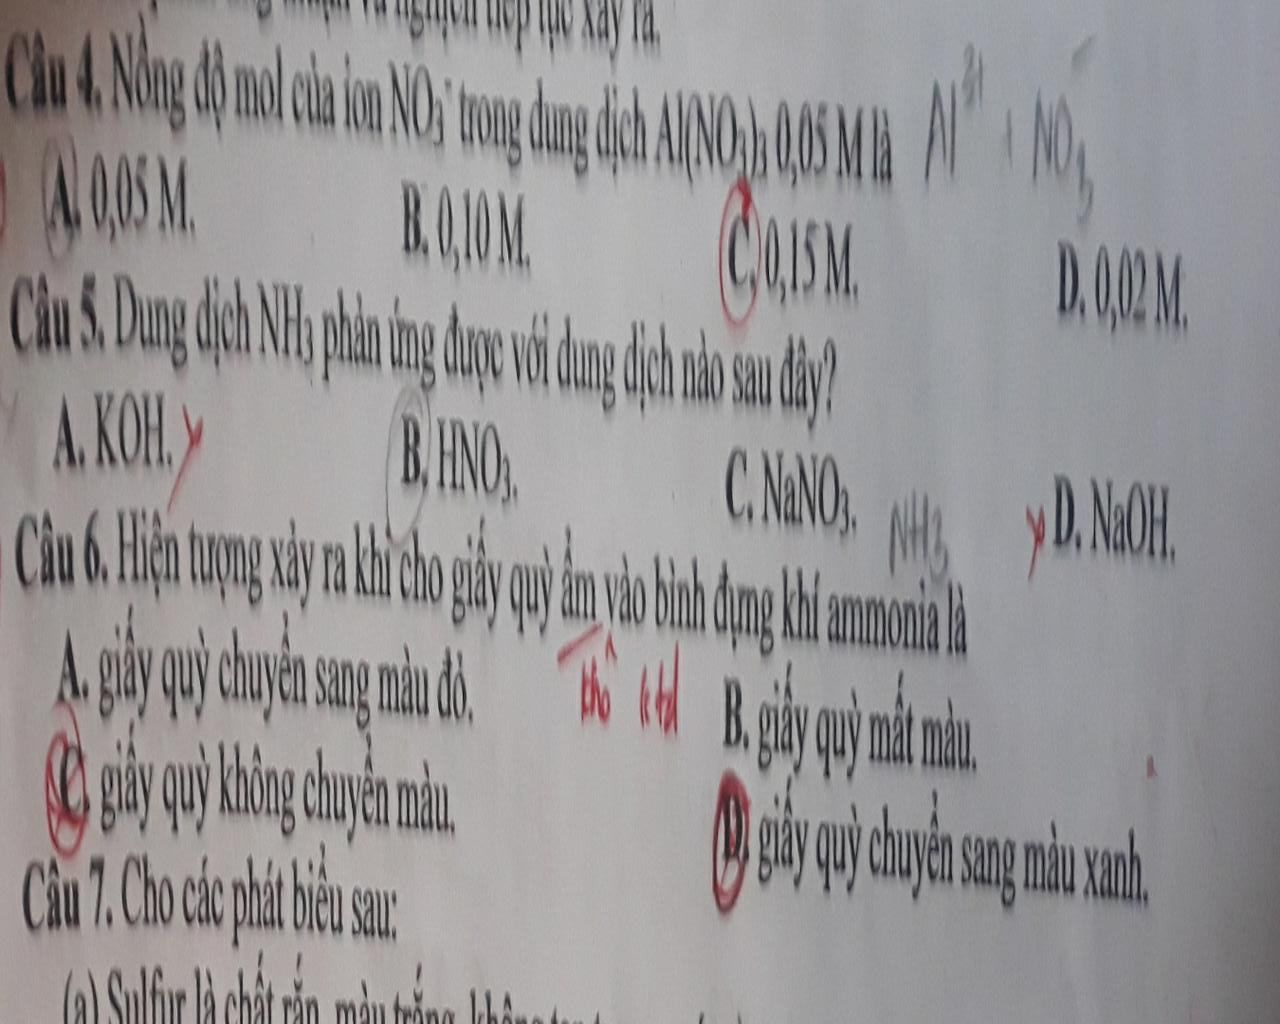 nghịch tiếp tục xảy ra.
Câu 4. Nồng độ mol của ion NO₃⁻ trong dung dịch Al(NO₃)₃ 0,05 M là Al³⁺ + NO₃
A. 0,05 M. B. 0,10 M. C. 0,15 M. D. 0,02 M.
Câu 5. Dung dịch NH₃ phản ứng được với dung dịch nào sau đây?
A. KOH. B. HNO₃. C. NaNO₃. D. NaOH.
NH₃
Câu 6. Hiện tượng xảy ra khi cho giấy quỳ ẩm vào bình đựng khí ammonia là
A. giấy quỳ chuyển sang màu đỏ. B. giấy quỳ mất màu.
C. giấy quỳ không chuyển màu. D. giấy quỳ chuyển sang màu xanh.
Câu 7. Cho các phát biểu sau:
(a) Sulfur là chất rắn, màu trắng, không